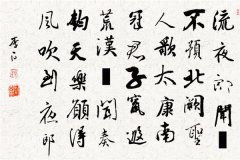 流夜郎聞
不預北闕聖
人歌太康南
冠君子竄遐
荒漢聞奏
鈞天樂願得
風吹到夜郎